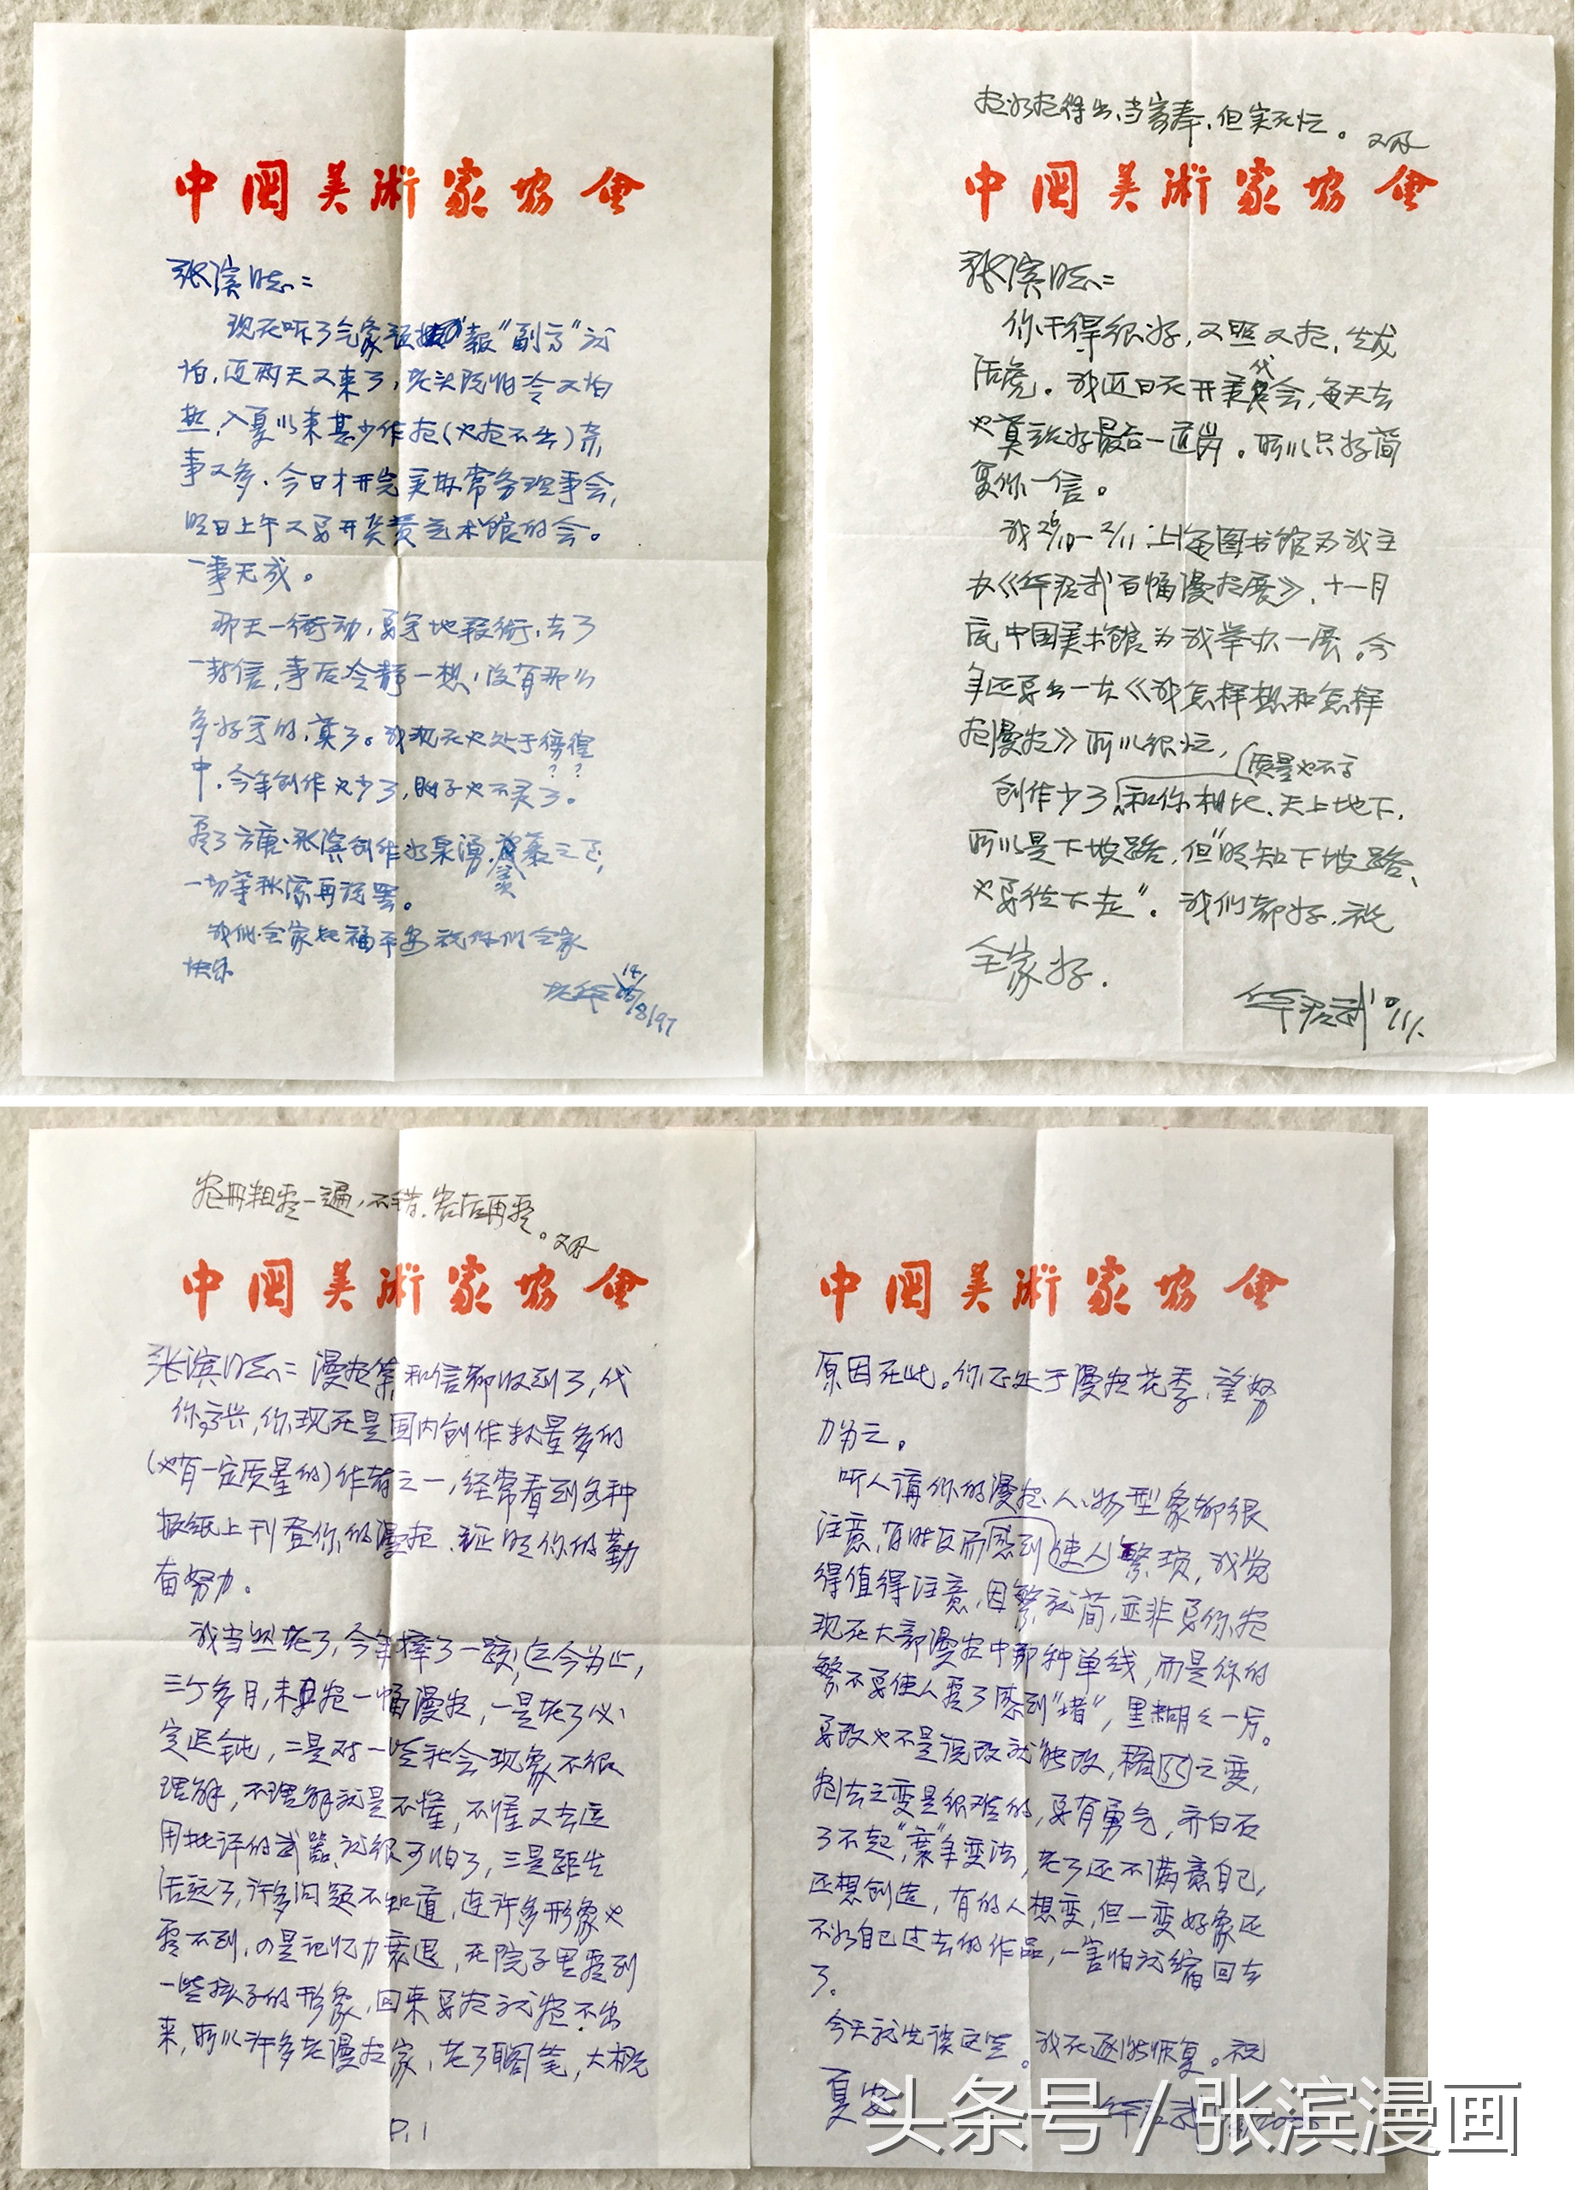 中国美術家协会
张滨同志:
现在听了气象预报"副高"就
怕,近两天又来了,老头既怕冷又怕
热,入夏以来甚少作画(也画不出)杂
事又多,今日才开完美协常务理事会,
明日上午又要开炎黄艺术馆的会。
一事无成。
那天一冲动,要写地段街,去了
一封信,事后冷静一想,没有那么
多好写的,算了。我现在也处于徬徨
??
中,今年创作也少了,脑子也不灵了。
看了方唐、张滨创作如泉涌,羡慕之至,
一切等秋凉再说罢。
我们全家托福平安祝你们全家
快乐
老华 14/8/97
画如画得出,当寄奉,但实在忙。
又及
中国美術家协会
张滨同志:
你干得很好,又照又画,生龙
活虎。我近日在开美代会,每天去
也算站好最后一班岗。所以只好简
复你一信。
我26/10-2/11上海图书馆为我主
办《华君武百幅漫画展》,十一月
底中国美术馆为我举办一展。今
年还要出一本《我怎样想和怎样
画漫画》所以很忙,
创作少了(质量也不高)和你相比、天上地下,
所以是下坡路,但"明知下坡路、
也要往下走"。我们都好,祝
全家好.
华君武 10/11.
画册粗看一遍,不错.容后再看。
又及
中国美術家协会
张滨同志:漫画集和信都收到了,代
你高兴,你现在是国内创作数量多的
(也有一定质量的)作者之一,经常看到各种
报纸上刊登你的漫画.证明你的勤
奋努力。
我当然老了,今年摔了一跤,迄今为止,
三个多月,未画一幅漫画,一是老了必
定迟钝,二是对一些社会现象不很
理解,不理解就是不懂,不懂又去运
用批评的武器,就很可怕了,三是距生
活远了,许多问题不知道,连许多形象也
看不到,四是记忆力衰退,在院子里看到
一些孩子的形象,回来要画就画不出
来,所以许多老漫画家,老了搁笔,大概
P.1
中国美術家协会
原因在此。你正处于漫画花季,望努
力为之。
听人讲你的漫画、人、物型象都很
注意,有时反而使人感到繁琐,我觉
得值得注意,因繁就简,并非要你画
现在大部漫画中那种单线,而是你的
繁不要使人看了感到"堵",黑糊糊一片。
要改也不是说改就能改,稿路之变,
画法之变是很难的,要有勇气,齐白石
了不起,"衰年变法",老了还不满意自己,
还想创造,有的人想变,但一变好象还
不如自己过去的作品,一害怕就缩回去
了.
今天就先谈这些。我在逐渐恢复。祝
夏安
华君武
头条号/张滨漫画